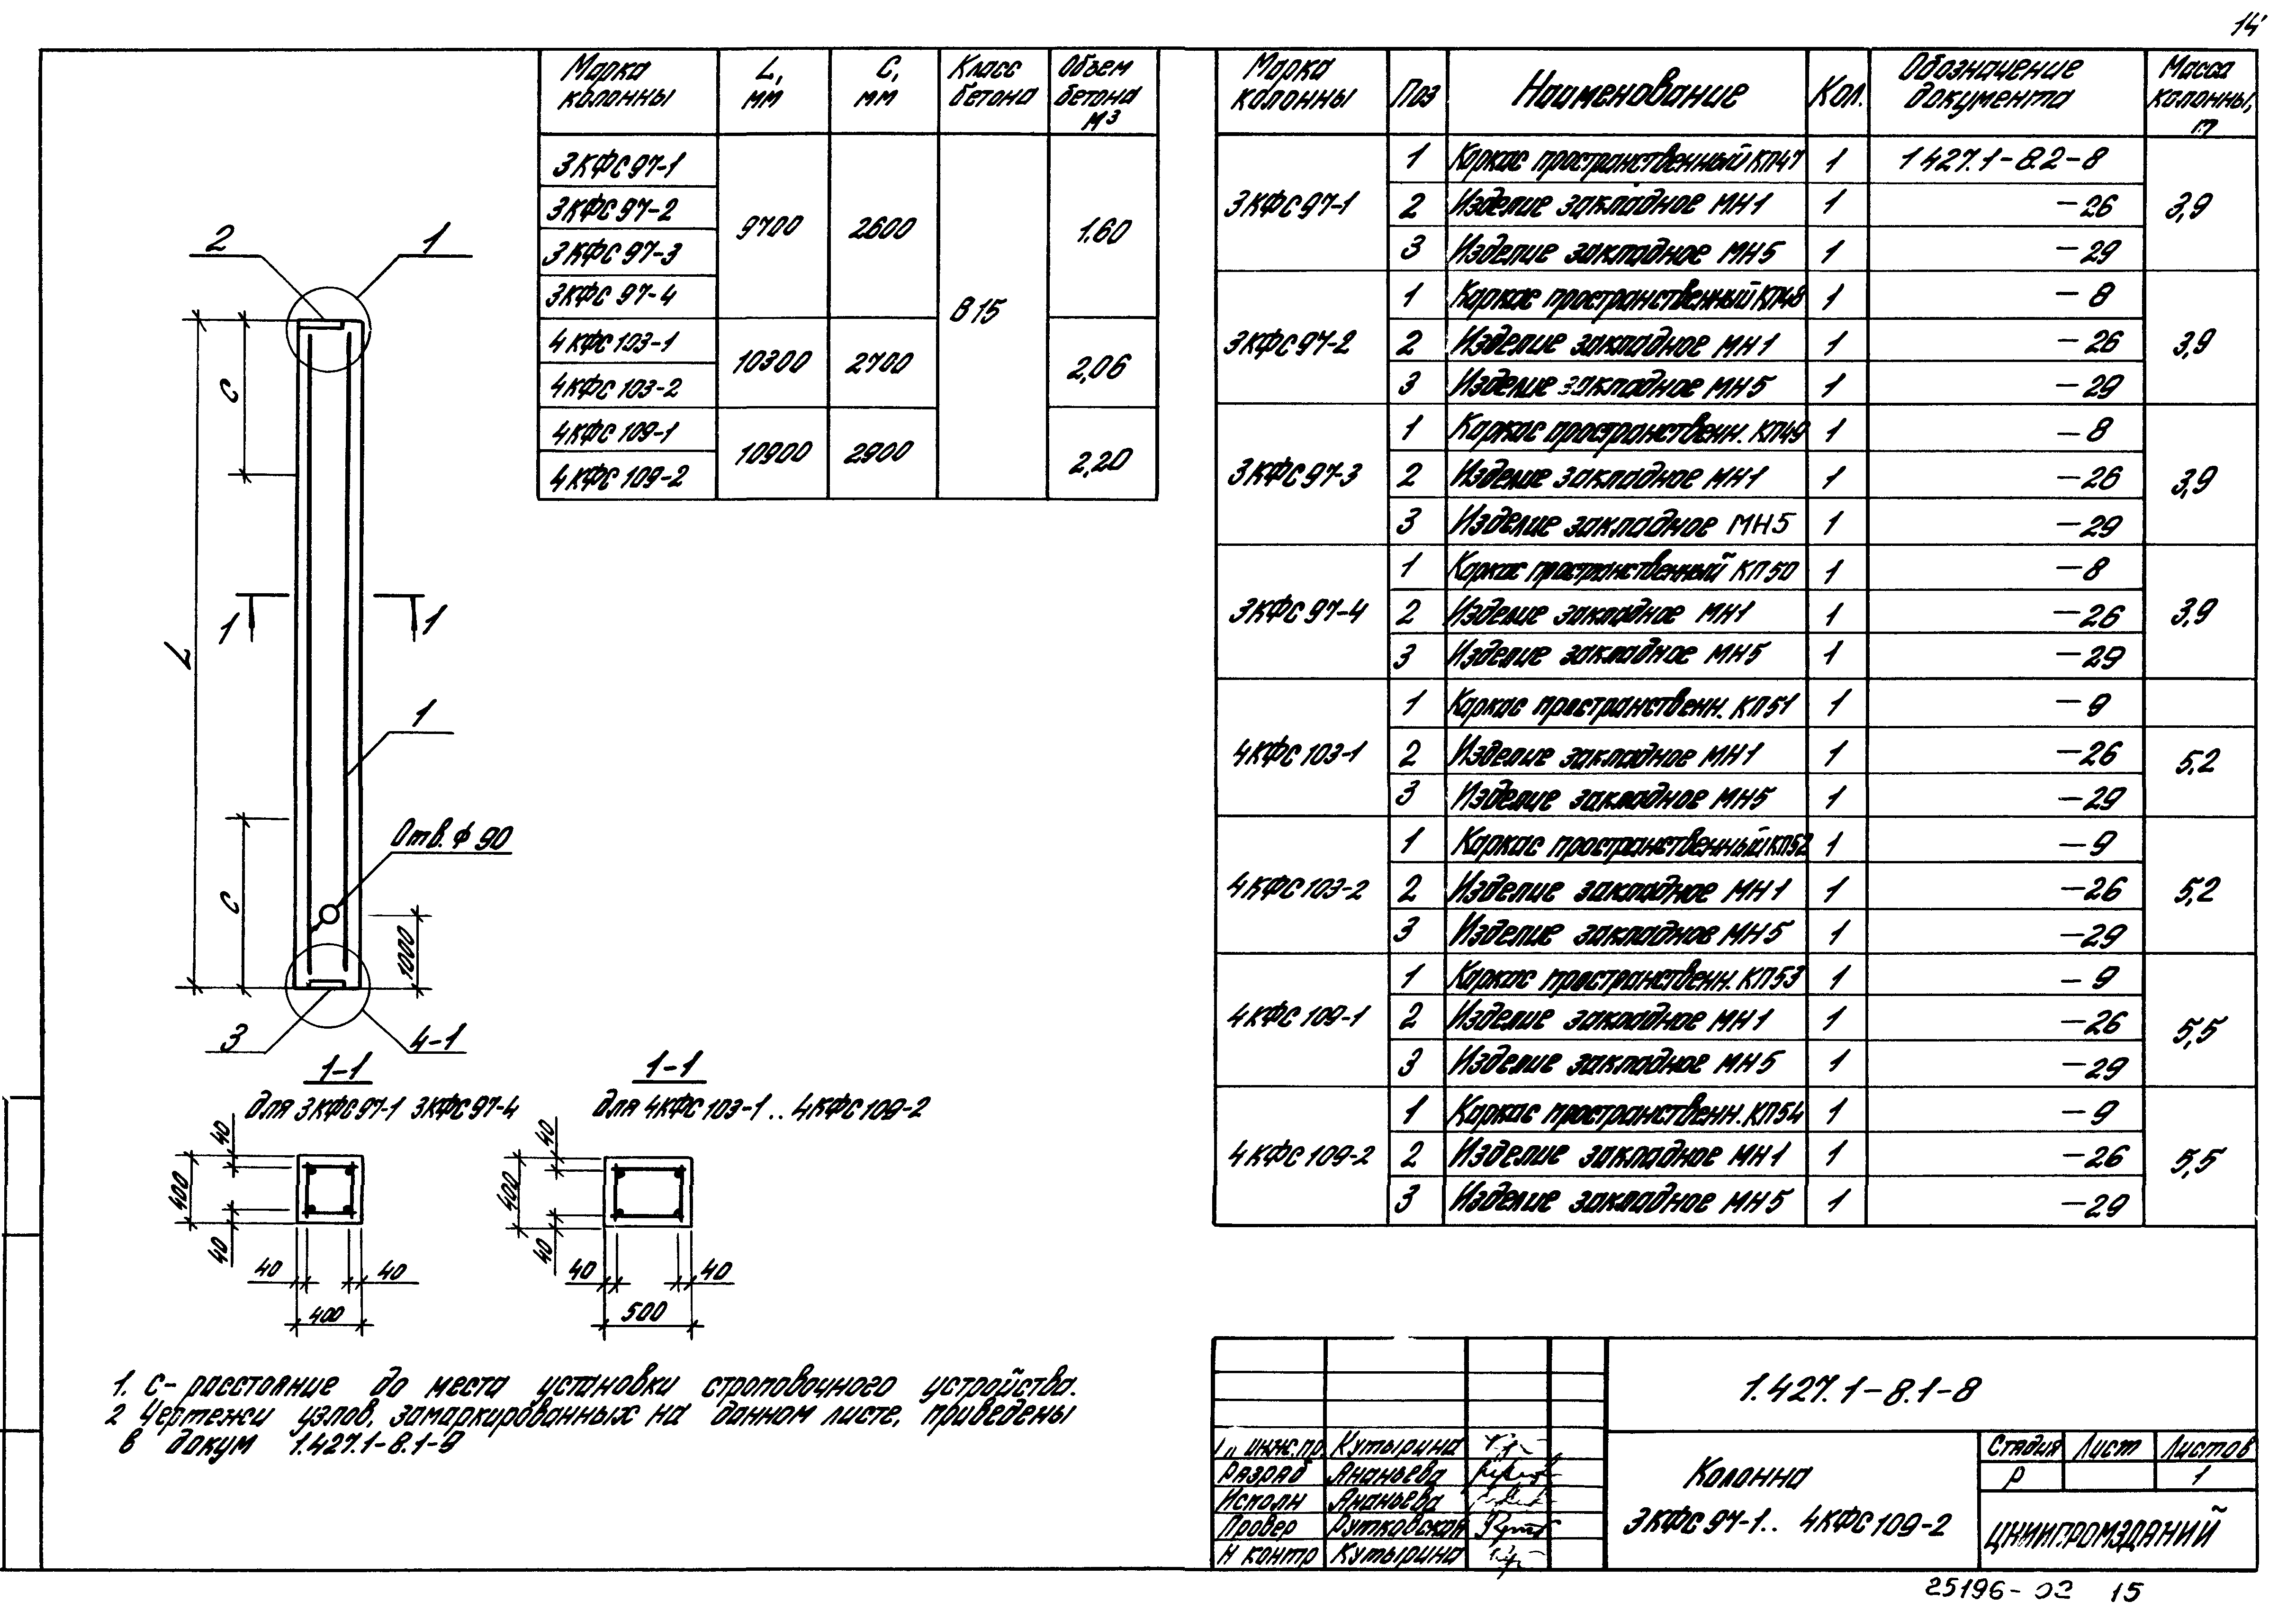 14
Марка колонны | L, мм | С, мм | Класс бетона | Объем бетона м³
3КФС97-1 | 9700 | 2600 | В15 | 1.60
3КФС97-2
3КФС97-3
3КФС97-4
4КФС103-1 | 10300 | 2700 | 2,06
4КФС103-2
4КФС109-1 | 10900 | 2900 | 2,20
4КФС109-2
2
1
С
L
1
1
1
Отв. ф 90
С
1000
3
4-1
1-1
для 3КФС97-1 3КФС97-4
40
400
40
40
40
400
1-1
для 4КФС103-1.. 4КФС109-2
40
400
40
40
40
500
1. С- расстояние до места установки строповочного устройства.
2 Чертежи узлов, замаркированных на данном листе, приведены
в докум 1.427.1-8.1-9
Марка колонны | Поз | Наименование | Кол. | Обозначение документа | Масса колонны, т
3КФС97-1 | 1 | Каркас пространственный КП47 | 1 | 1427.1-8.2-8 | 3,9
2 | Изделие закладное МН1 | 1 | -26
3 | Изделие закладное МН5 | 1 | -29
3КФС97-2 | 1 | Каркас пространственный КП48 | 1 | -8 | 3,9
2 | Изделие закладное МН1 | 1 | -26
3 | Изделие закладное МН5 | 1 | -29
3КФС97-3 | 1 | Каркас пространственн. КП49 | 1 | -8 | 3,9
2 | Изделие закладное МН1 | 1 | -26
3 | Изделие закладное МН5 | 1 | -29
3КФС97-4 | 1 | Каркас пространственный КП50 | 1 | -8 | 3,9
2 | Изделие закладное МН1 | 1 | -26
3 | Изделие закладное МН5 | 1 | -29
4КФС103-1 | 1 | Каркас пространственн. КП51 | 1 | -9 | 5,2
2 | Изделие закладное МН1 | 1 | -26
3 | Изделие закладное МН5 | 1 | -29
4КФС103-2 | 1 | Каркас пространственный КП52 | 1 | -9 | 5,2
2 | Изделие закладное МН1 | 1 | -26
3 | Изделие закладное МН5 | 1 | -29
4КФС109-1 | 1 | Каркас пространственн. КП53 | 1 | -9 | 5,5
2 | Изделие закладное МН1 | 1 | -26
3 | Изделие закладное МН5 | 1 | -29
4КФС109-2 | 1 | Каркас пространственн. КП54 | 1 | -9 | 5,5
2 | Изделие закладное МН1 | 1 | -26
3 | Изделие закладное МН5 | 1 | -29
1.427.1-8.1-8
инж.пр. Кутырина
Разраб Ананьева
Исполн Ананьева
Провер Рутковская
Н контр Кутырина
Колонна
3КФС97-1.. 4КФС109-2
Стадия | Лист | Листов
Р | 1
ЦНИИПРОМЗДАНИЙ
25196-02 15